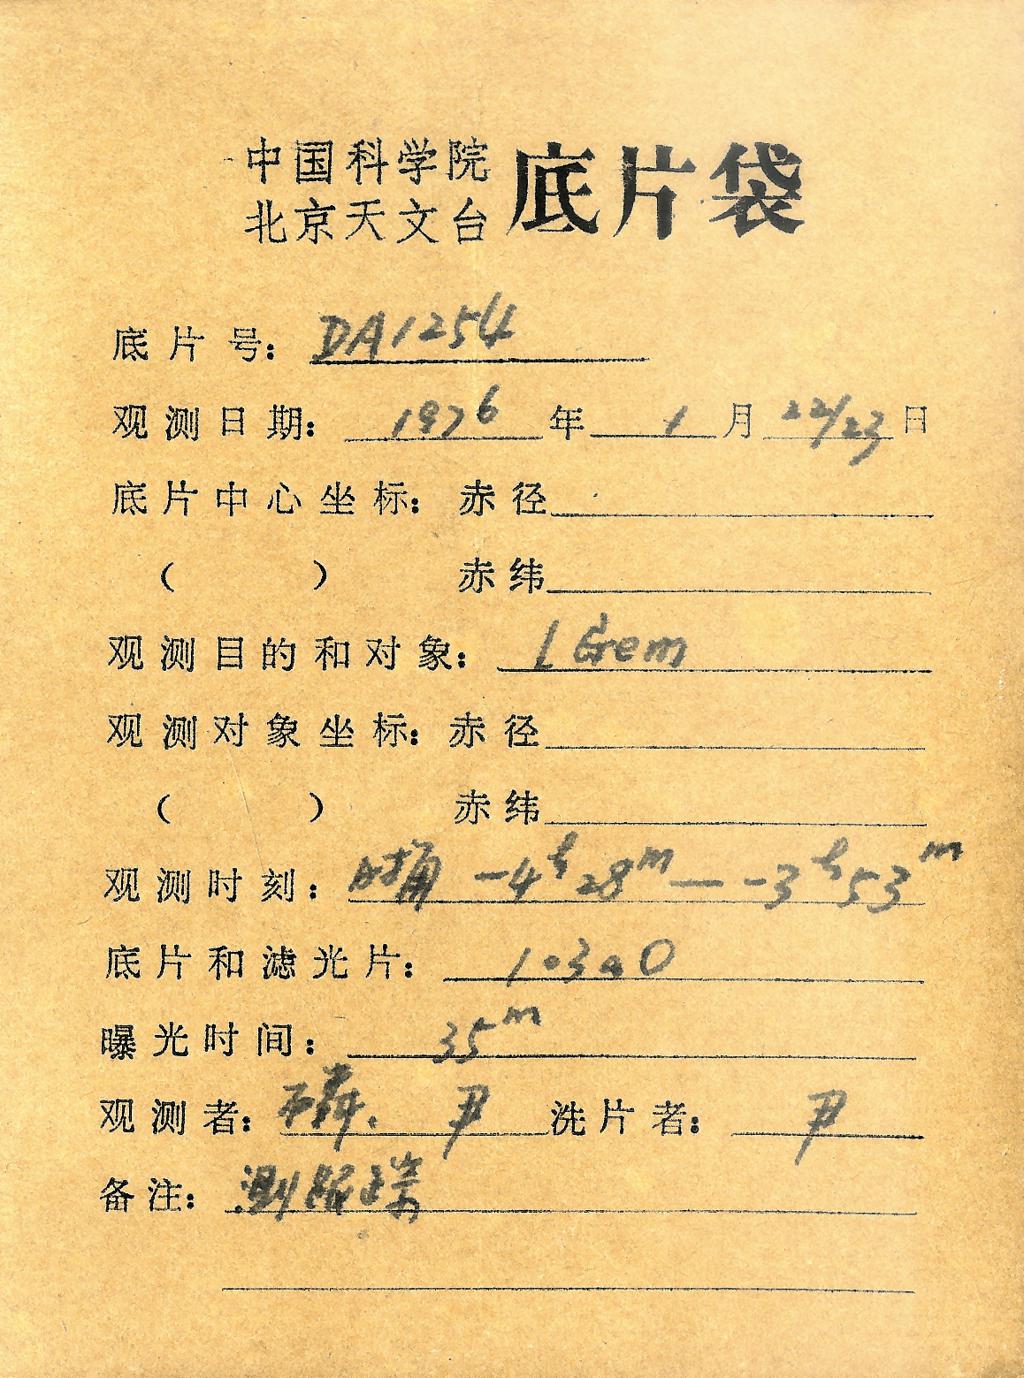 中国科学院
北京天文台 底片袋
底片号: DA1254
观测日期: 1976年1月22/23日
底片中心坐标: 赤径
( ) 赤纬
观测目的和对象: 1 Gem
观测对象坐标: 赤径
( ) 赤纬
观测时刻: 时角 -4h28m — -3h53m
底片和滤光片: 103aO
曝光时间: 35m
观测者: 尹 洗片者: 尹
备注: 测跟踪